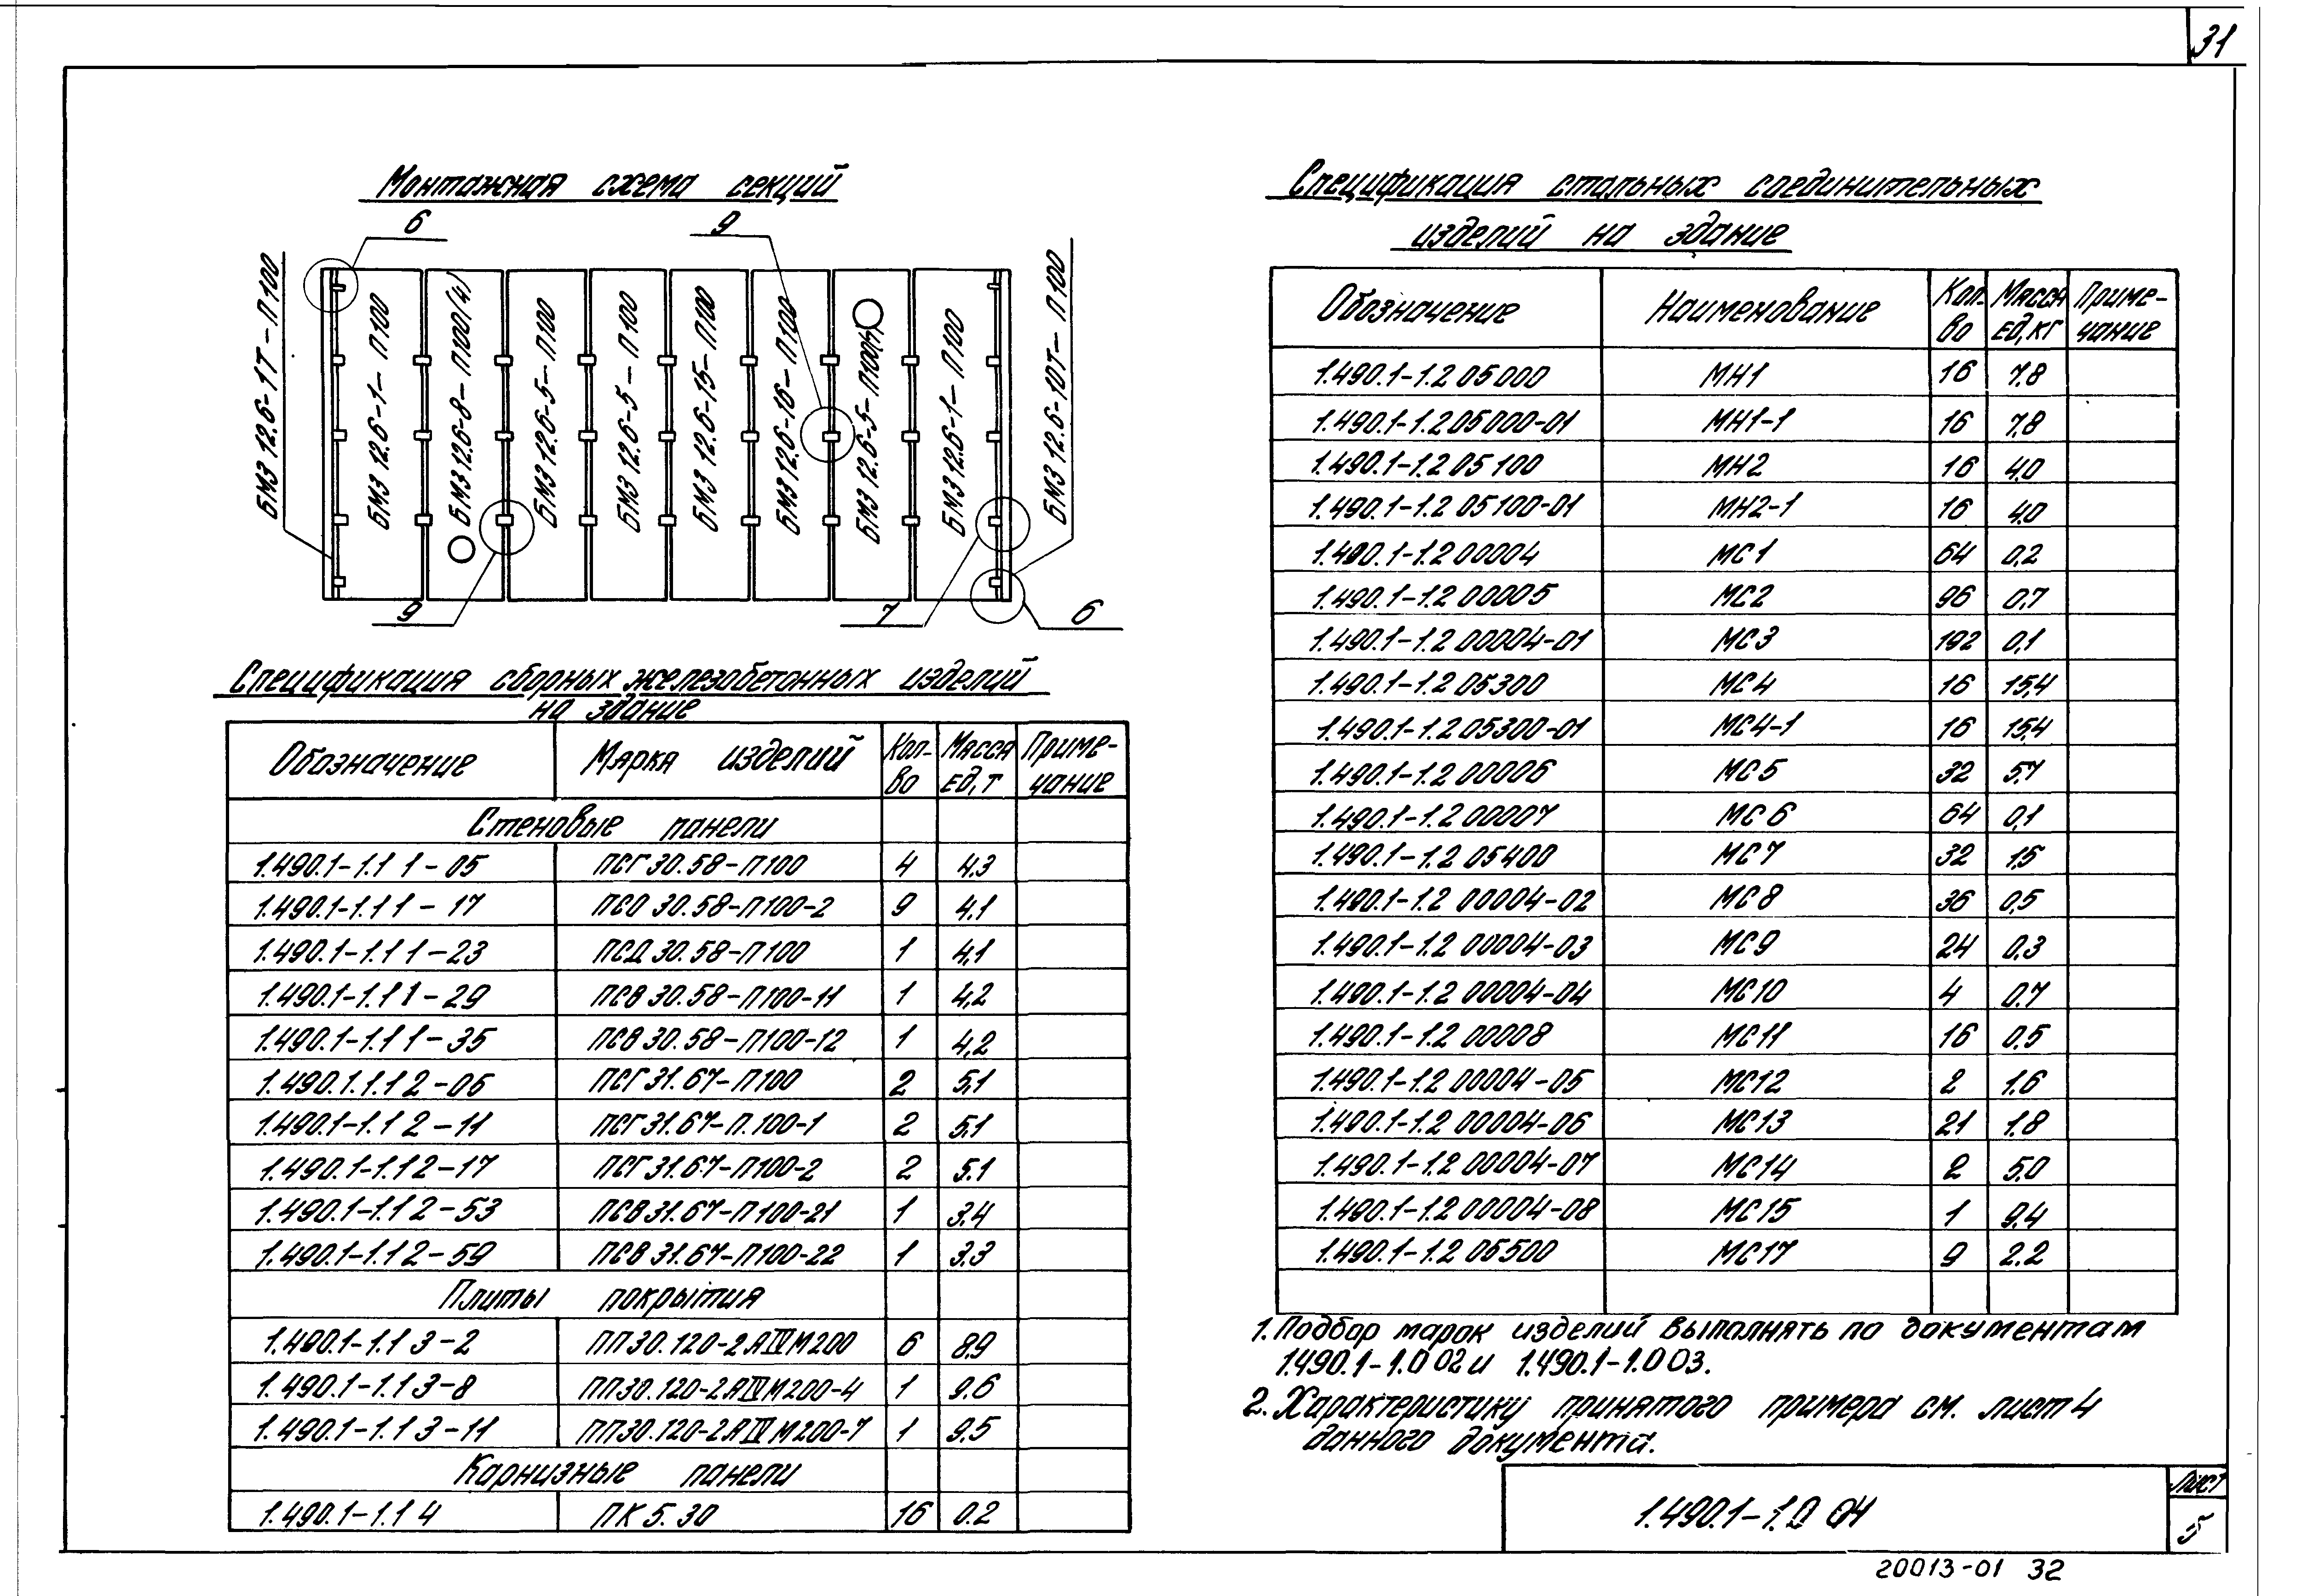 31
Монтажная схема секций
6
9
БМЗ 12.6-1Т-П100
БМЗ 12.6-1-П100
БМЗ 12.6-8-П100(4)
БМЗ 12.6-5-П100
БМЗ 12.6-5-П100
БМЗ 12.6-15-П100
БМЗ 12.6-16-П100
БМЗ 12.6-5-П100(4)
БМЗ 12.6-1-П100
БМЗ 12.6-10Т-П100
9
7
6
Спецификация сборных железобетонных изделий
на здание
Обозначение Марка изделий Кол-во Масса ед, т Примечание
Стеновые панели
1.490.1-1.1 1-05 ПСГ 30.58-П100 4 4.3
1.490.1-1.1 1-17 ПСО 30.58-П100-2 9 4.1
1.490.1-1.1 1-23 ПСД 30.58-П100 1 4,1
1.490.1-1.1 1-29 ПСВ 30.58-П100-11 1 4,2
1.490.1-1.1 1-35 ПСВ 30.58-П100-12 1 4,2
1.490.1.1.1 2-06 ПСГ 31.67-П100 2 5,1
1.490.1-1.1 2-11 ПСГ 31.67-П.100-1 2 5,1
1.490.1-1.1 2-17 ПСГ 31.67-П100-2 2 5.1
1.490.1-1.1 2-53 ПСВ 31.67-П100-21 1 3,4
1.490.1-1.1 2-59 ПСВ 31.67-П100-22 1 3,3
Плиты покрытия
1.490.1-1.1 3-2 ПП30.120-2АIVМ200 6 8,9
1.490.1-1.1 3-8 ПП30.120-2АIVМ200-4 1 9.6
1.490.1-1.1 3-11 ПП30.120-2АIVМ200-7 1 9.5
Карнизные панели
1.490.1-1.1 4 ПК 5.30 16 0.2
Спецификация стальных соединительных
изделий на здание
Обозначение Наименование Кол-во Масса ед, кг Примечание
1.490.1-1.2 05000 МН1 16 7.8
1.490.1-1.2 05000-01 МН1-1 16 7,8
1.490.1-1.2 05100 МН2 16 4,0
1.490.1-1.2 05100-01 МН2-1 16 4,0
1.490.1-1.2 00004 МС1 64 0,2
1.490.1-1.2 00005 МС2 96 0,7
1.490.1-1.2 00004-01 МС3 192 0,1
1.490.1-1.2 05300 МС4 16 15,4
1.490.1-1.2 05300-01 МС4-1 16 15,4
1.490.1-1.2 00006 МС5 32 5,7
1.490.1-1.2 00007 МС6 64 0,1
1.490.1-1.2 05400 МС7 32 1,5
1.490.1-1.2 00004-02 МС8 36 0,5
1.490.1-1.2 00004-03 МС9 24 0.3
1.490.1-1.2 00004-04 МС10 4 0.7
1.490.1-1.2 00008 МС11 16 0.5
1.490.1-1.2 00004-05 МС12 2 1.6
1.490.1-1.2 00004-06 МС13 21 1.8
1.490.1-1.2 00004-07 МС14 2 5,0
1.490.1-1.2 00004-08 МС15 1 9,4
1.490.1-1.2 05500 МС17 9 2.2
1. Подбор марок изделий выполнять по документам
1.490.1-1.0 02 и 1.490.1-1.0 03.
2. Характеристику принятого примера см. лист 4
данного документа.
1.490.1-1.0 04
Лист
5
20013-01 32